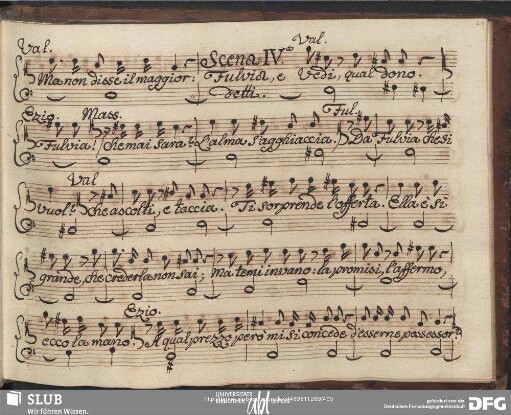 Val. Scena IV.a Val.
Ma non disse il maggior: Fulvia, e Vedi, qual dono.
detti.
Ezio. Mass. Ful.
Fulvia! Che mai sarà? L'alma s'agghiaccia. Da Fulvia che si
Val
vuol? che ascolti, e taccia. Ti sorprende l'offerta. Ella è si
grande, che crederla non sai; ma temi invano: la promisi, l'affermo,
Ezio.
ecco la mano. A qual prezzo però mi si concede d'esserne possessor?
SLUB
Wir führen Wissen.
UNIVERSITÄTS
gefördert von der
Deutschen Forschungsgemeinschaft
DFG